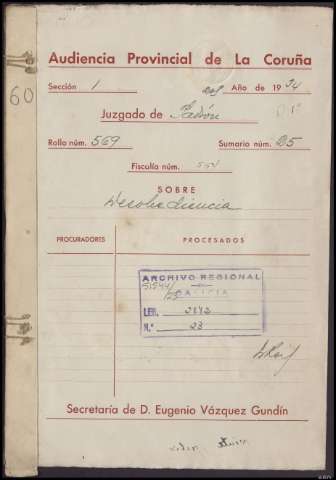 Audiencia Provincial de La Coruña
Sección 1 Año de 1934
60
Juzgado de Padrón
Rollo núm. 569 Sumario núm. 25
Fiscalía núm. 554
SOBRE
Desobediencia
PROCURADORES PROCESADOS
ARCHIVO REGIONAL
GALICIA
LEG.
N.º 23
Secretaría de D. Eugenio Vázquez Gundín